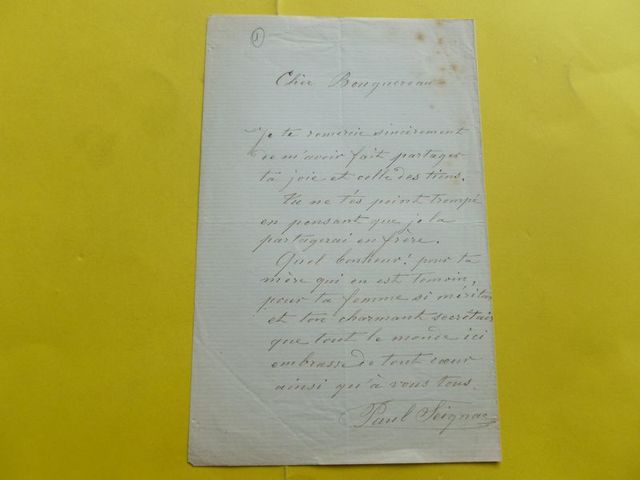 1
Cher Bouguereau
Je te remercie sincèrement
de m'avoir fait partager
ta joie et celle des tiens.
Tu ne t'es point trompé
en pensant que je la
partagerai en frère.
Quel bonheur! pour ta
mère qui en est temoin,
pour ta femme si méritan
et ton charmant secrétair
que tout le monde ici
embrasse de tout cœur
ainsi qu'à vous tous.
Paul Seignac